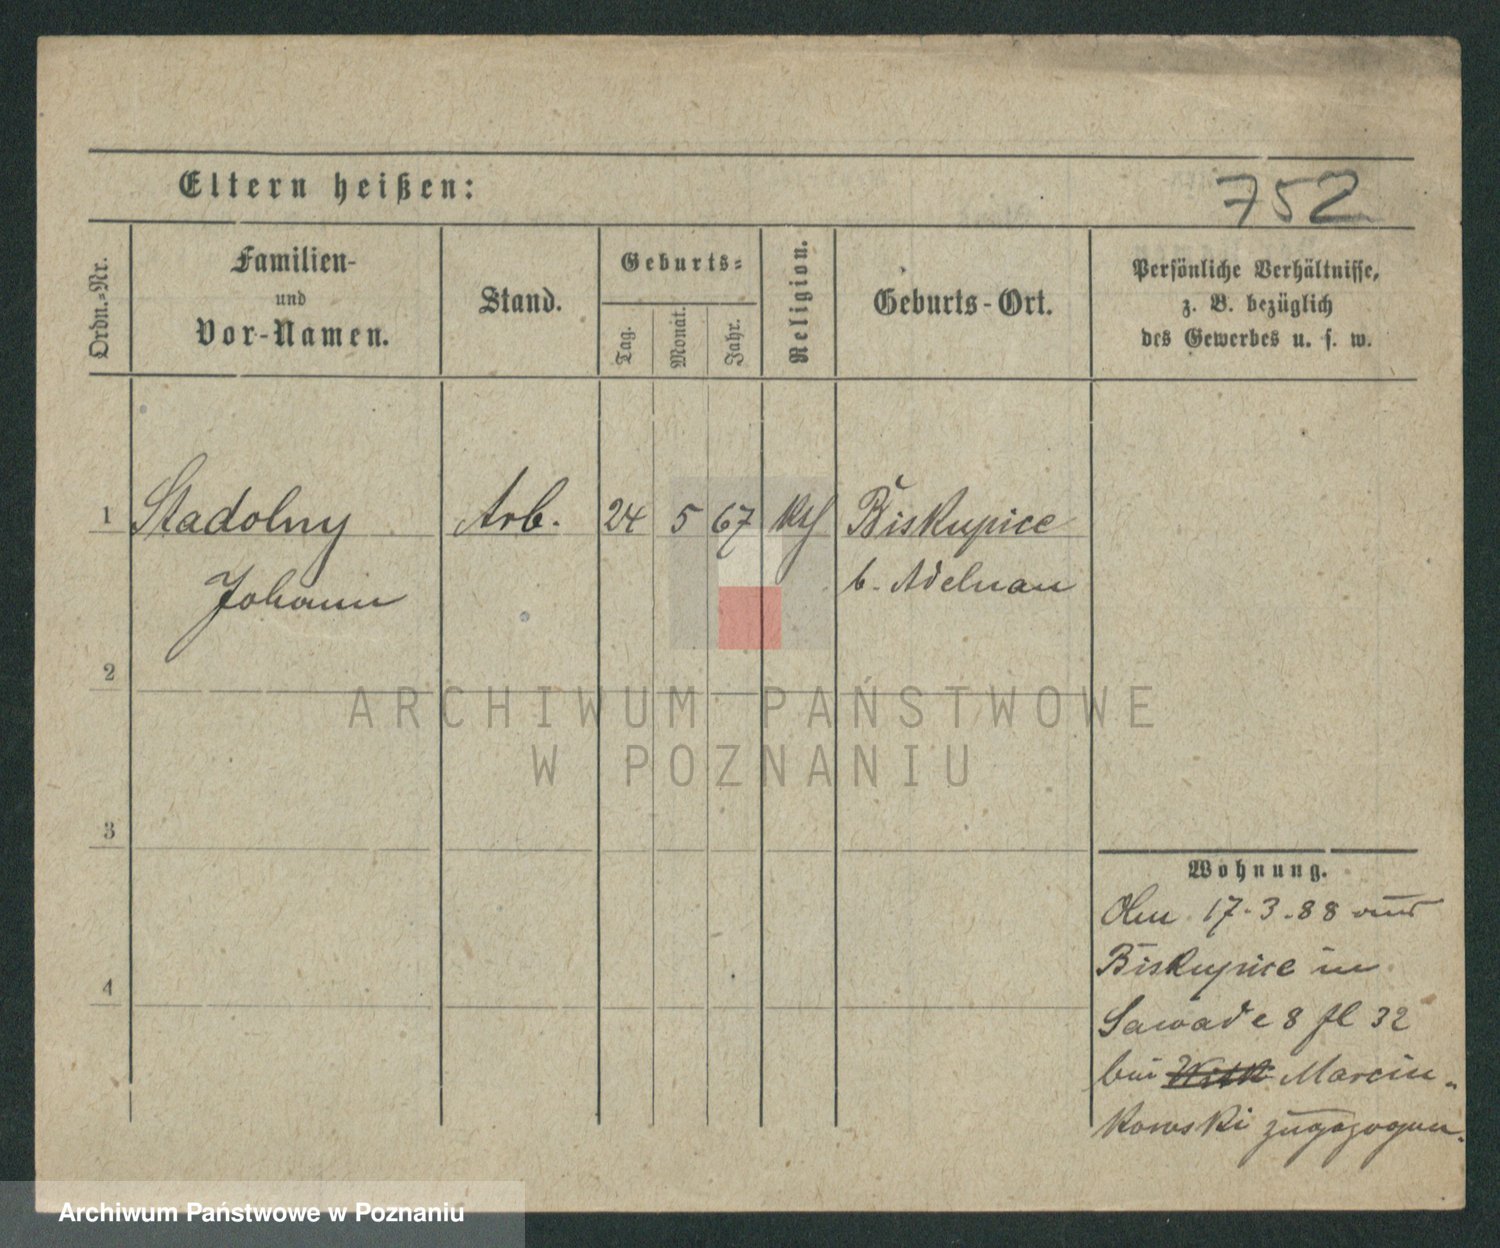 Eltern heißen:
752
Ordn.-Nr.
Familien-
und
Vor-Namen.
Stand.
Geburts-
Tag.
Monat.
Jahr.
Religion.
Geburts-Ort.
Persönliche Verhältnisse,
z. B. bezüglich
des Gewerbes u. s. w.
1 Stadolny Arb. 24 5 67 kth Biskupice
Johann b. Adelnau
2
ARCHIWUM PAŃSTWOWE
W POZNANIU
3
4
Wohnung.
17.3.88 aus
Biskupice in
Sawade 8 fl 32
bei Witk Marcin-
kowski zugezogen.
Archiwum Państwowe w Poznaniu